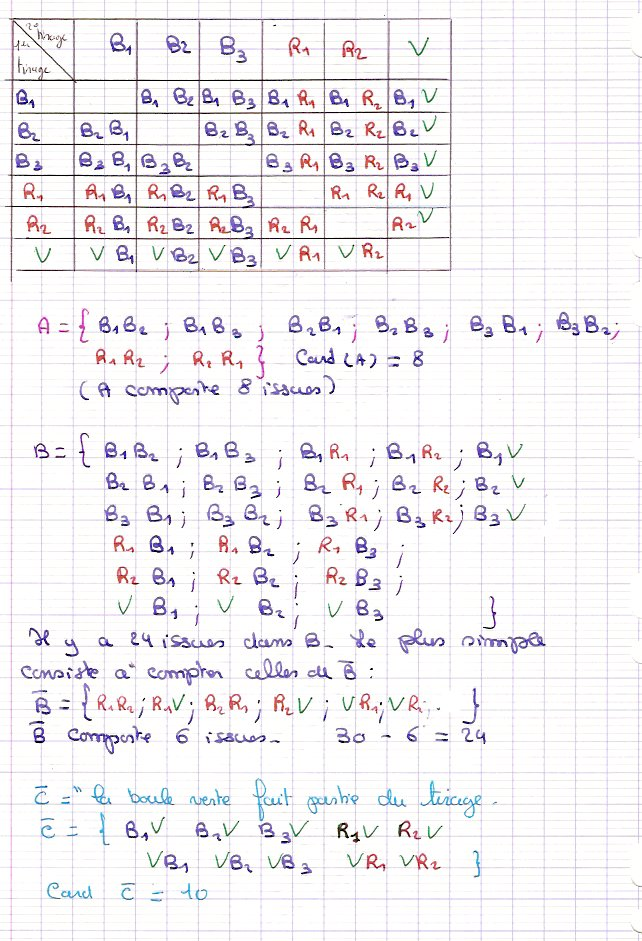 2e tirage
1er tirage
B1 B2 B3 R1 R2 V
B1 B1 B2 B1 B3 B1 R1 B1 R2 B1 V
B2 B2 B1 B2 B3 B2 R1 B2 R2 B2 V
B3 B3 B1 B3 B2 B3 R1 B3 R2 B3 V
R1 R1 B1 R1 B2 R1 B3 R1 R2 R1 V
R2 R2 B1 R2 B2 R2 B3 R2 R1 R2 V
V V B1 V B2 V B3 V R1 V R2
A = { B1B2 ; B1B3 ; B2B1 ; B2B3 ; B3B1 ; B3B2 ;
R1R2 ; R2R1 } Card (A) = 8
( A comporte 8 issues )
B = { B1B2 ; B1B3 ; B1R1 ; B1R2 ; B1V
B2 B1 ; B2 B3 ; B2 R1 ; B2 R2 ; B2 V
B3 B1 ; B3 B2 ; B3 R1 ; B3 R2 ; B3 V
R1 B1 ; R1 B2 ; R1 B3 ;
R2 B1 ; R2 B2 ; R2 B3 ;
V B1 ; V B2 ; V B3 }
Il y a 24 issues dans B. Le plus simple
consiste à compter celles de B̅ :
B̅ = { R1R2 ; R1V ; R2R1 ; R2V ; VR1 ; VR2 . }
B̅ comporte 6 issues. 30 - 6 = 24
C̅ = " la boule verte fait partie du tirage .
C̅ = { B1V B2V B3V R1V R2V
VB1 VB2 VB3 VR1 VR2 }
Card C̅ = 10